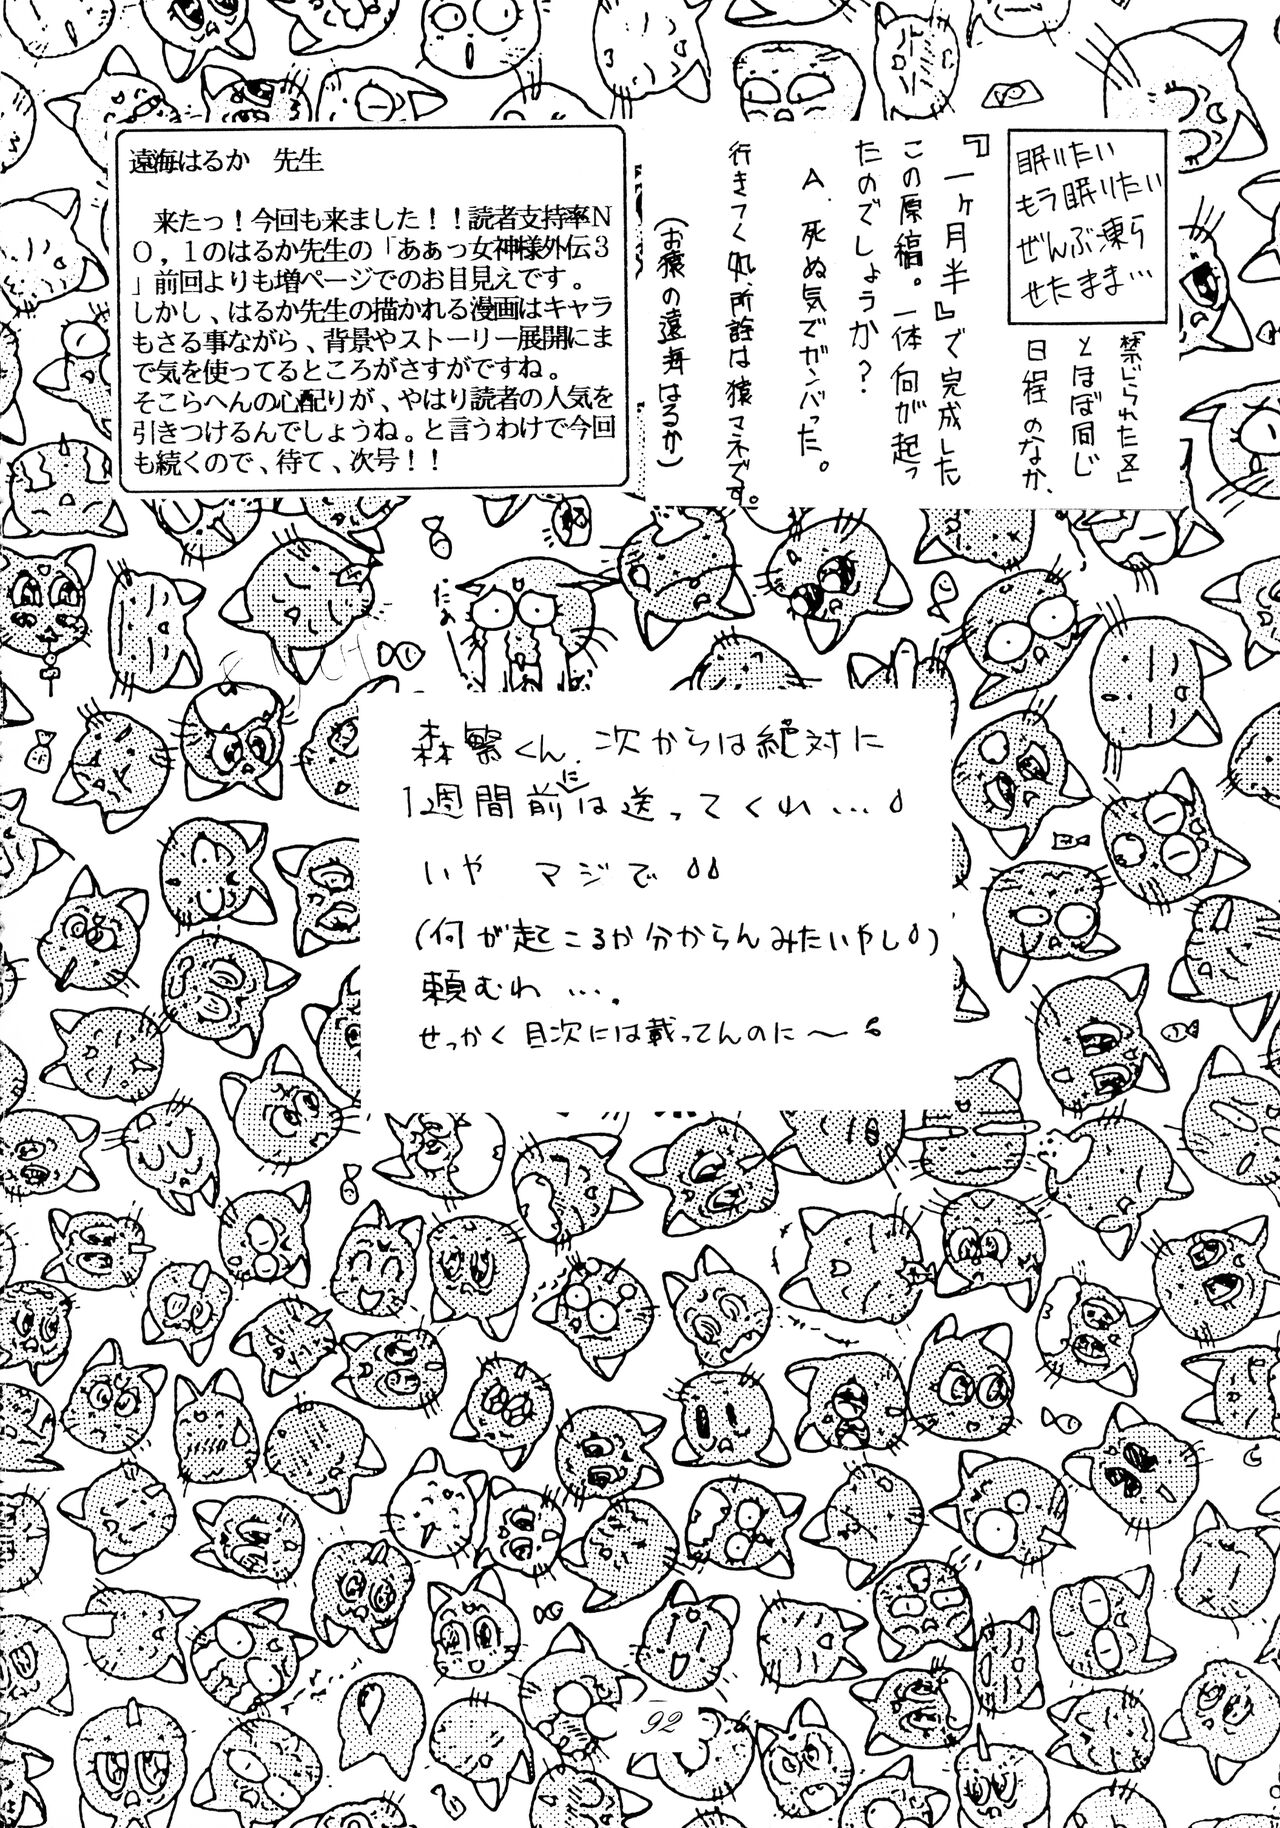 眠りたい
もう眠りたい
ぜんぶ凍ら
せたまま…
「禁じられた区」
とほぼ同じ
日程のなか、
『一ヶ月半』で完成した
この原稿。一体何が起っ
たのでしょうか?
A.死ぬ気でガンバった。
行きつく処、所詮は猿マネです。
(お猿の遠海はるか)
遠海はるか 先生
来たっ!今回も来ました!!読者支持率N
O,1のはるか先生の「あぁっ女神様外伝3
」前回よりも増ページでのお目見えです。
しかし、はるか先生の描かれる漫画はキャラ
もさる事ながら、背景やストーリー展開にま
で気を使ってるところがさすがですね。
そこらへんの心配りが、やはり読者の人気を
引きつけるんでしょうね。と言うわけで今回
も続くので、待て、次号!!
森繁くん、次からは絶対に
1週間前には送ってくれ…
いや マジで
(何が起こるか分からんみたいやし)
頼むわ…。
せっかく目次には載ってんのに〜
92